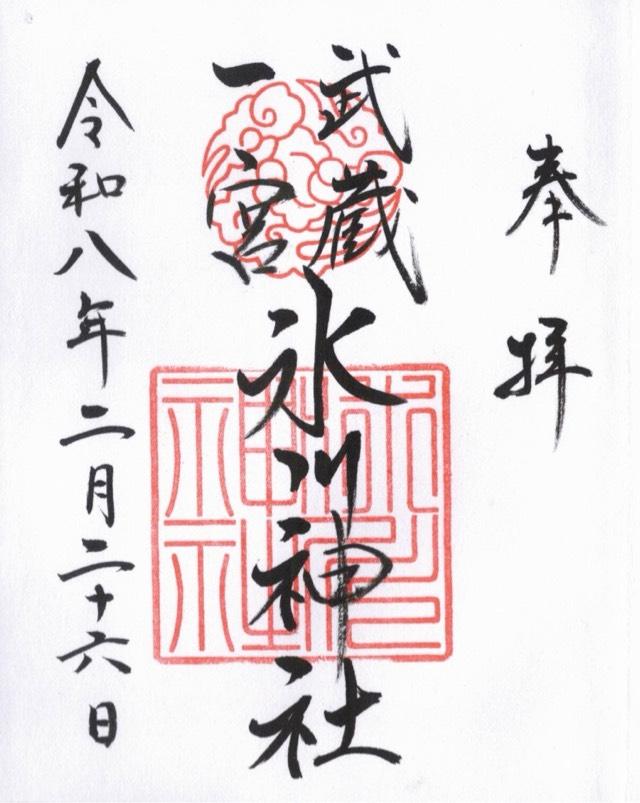 奉拝
武蔵
一宮
氷川神社
令和八年二月二十六日